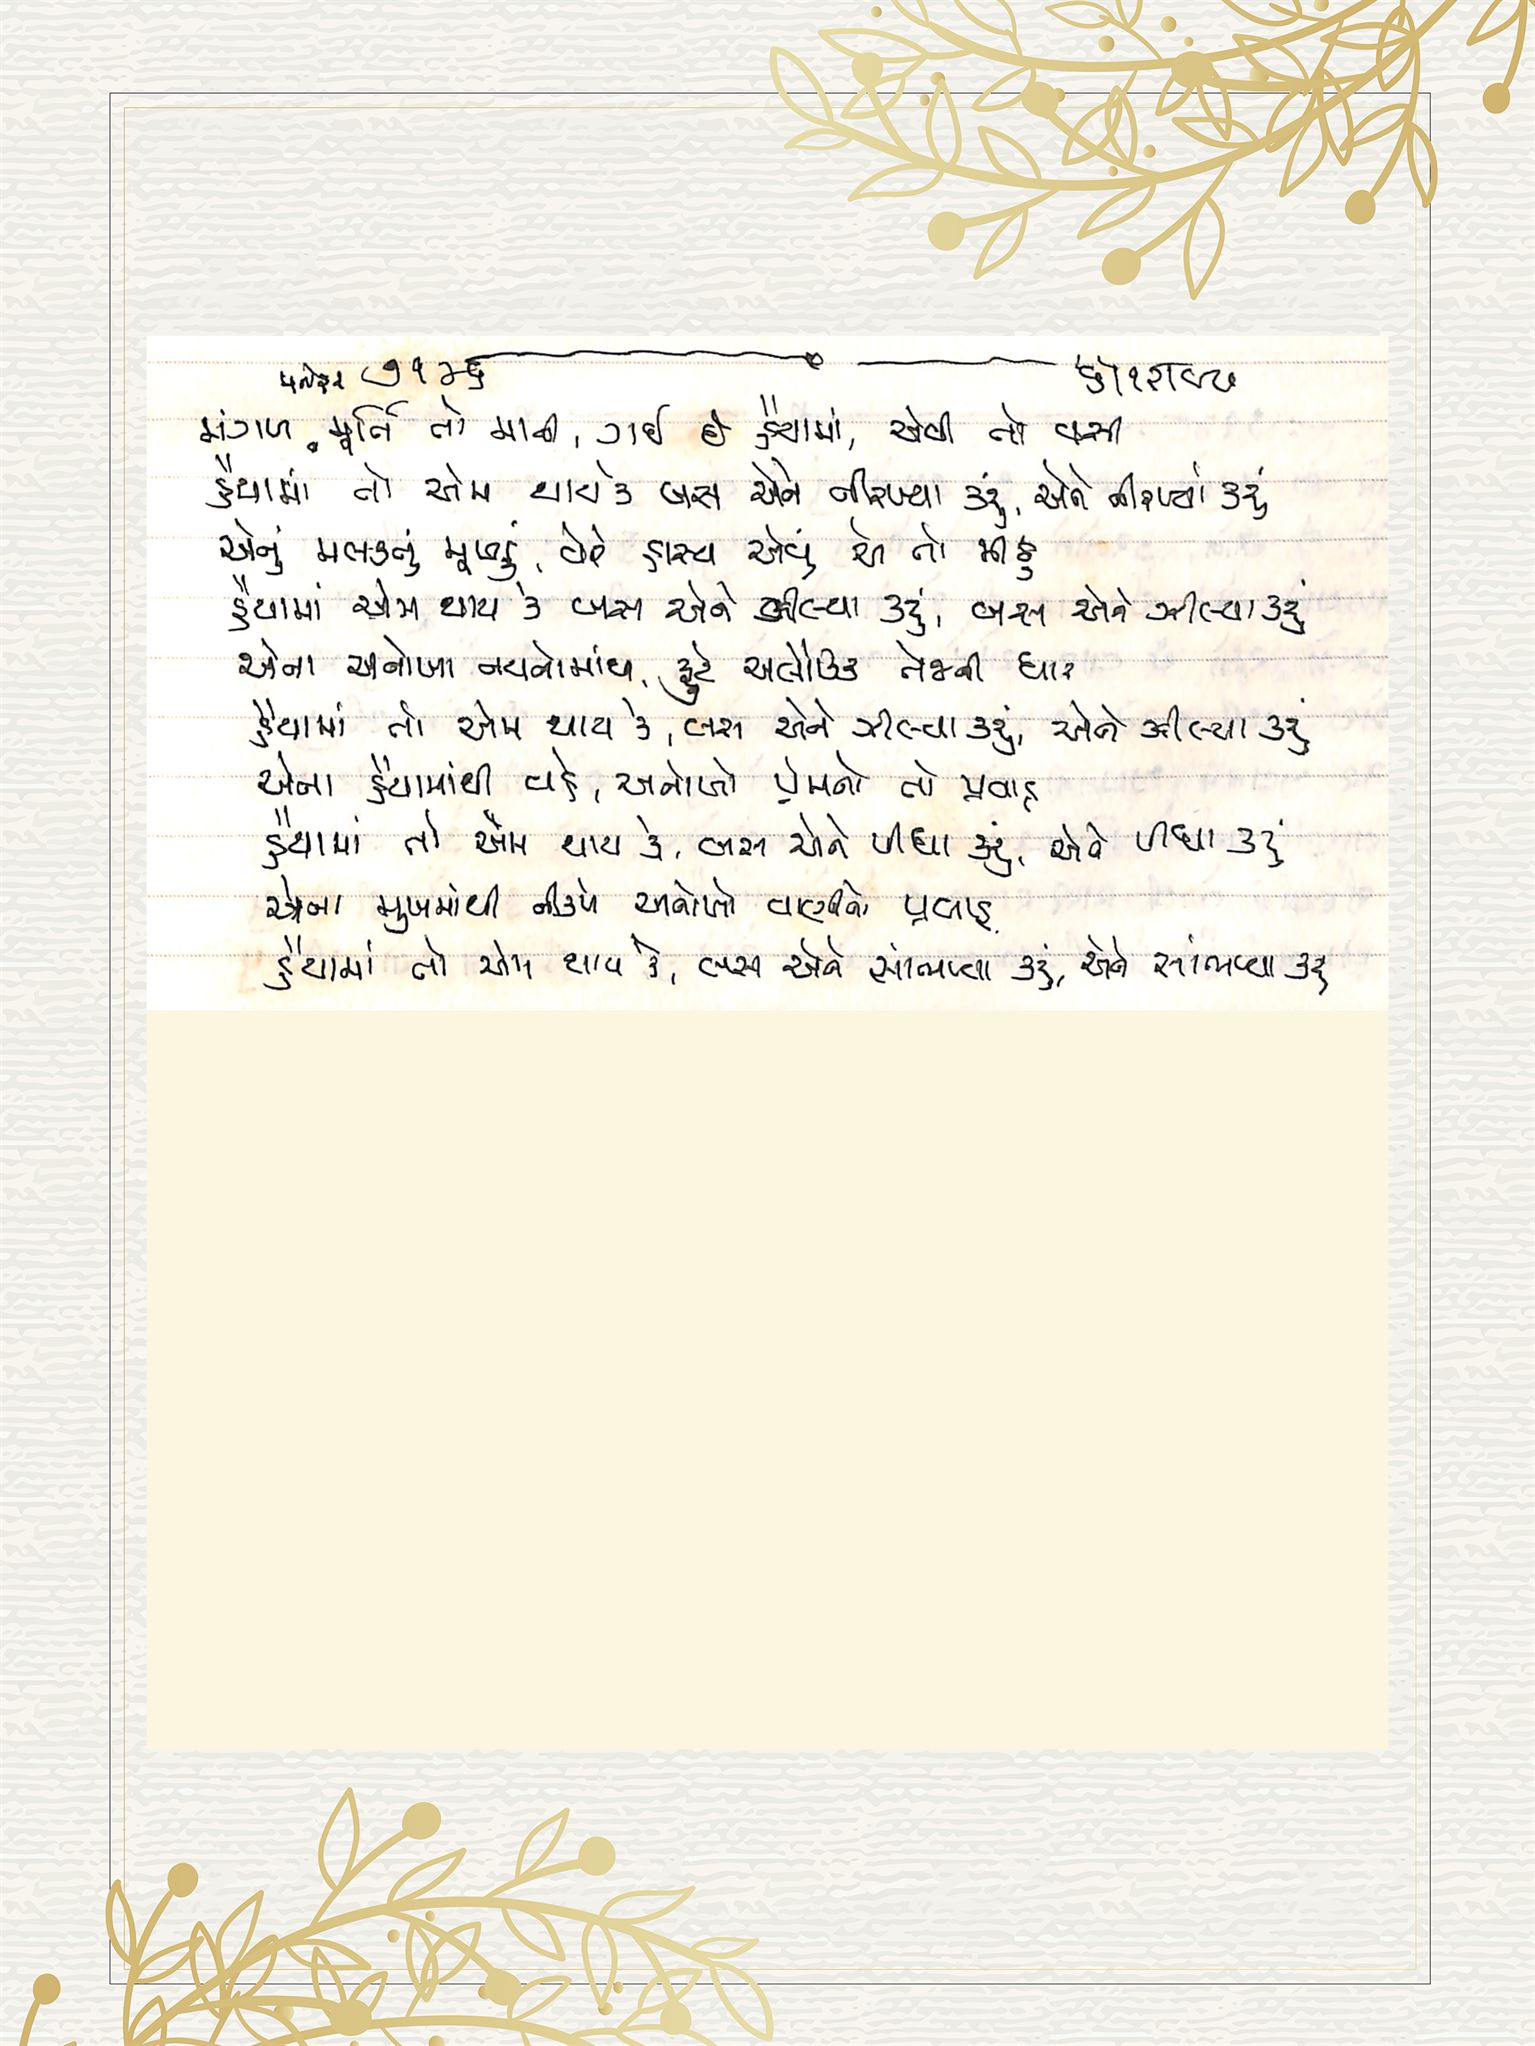 મંગળ મૂર્તિ તો માની, ગઈ છે હૈયામાં, એવી તો વસી
હૈયામાં તો એમ થાય કે બસ એને નીરખ્યા કરું, એને નીરખ્યા કરું
એનું મલકનું મૂખડું, વેરે હાસ્ય એવું એ તો મીઠુ
હૈયામાં એમ થાય કે બસ એને ઝીલ્યા કરું, બસ એને ઝીલ્યા કરું
એના અનોખા નયનોમાંથી, ફુટે અલૌકિક તેજની ધાર
હૈયામાં તો એમ થાય કે, બસ એને ઝીલ્યા કરું, એને ઝીલ્યા કરું
એના હૈયામાંથી વહે, અનોખો પ્રેમનો તો પ્રવાહ
હૈયામાં તો એમ થાય કે, બસ એને પીધા કરું, એને પીધા કરું
એના મુખમાંથી નીકળે અનોખો વાણીનો પ્રવાહ
હૈયામાં તો એમ થાય કે, બસ એને સાંભળ્યા કરું, એને સાંભળ્યા કરું